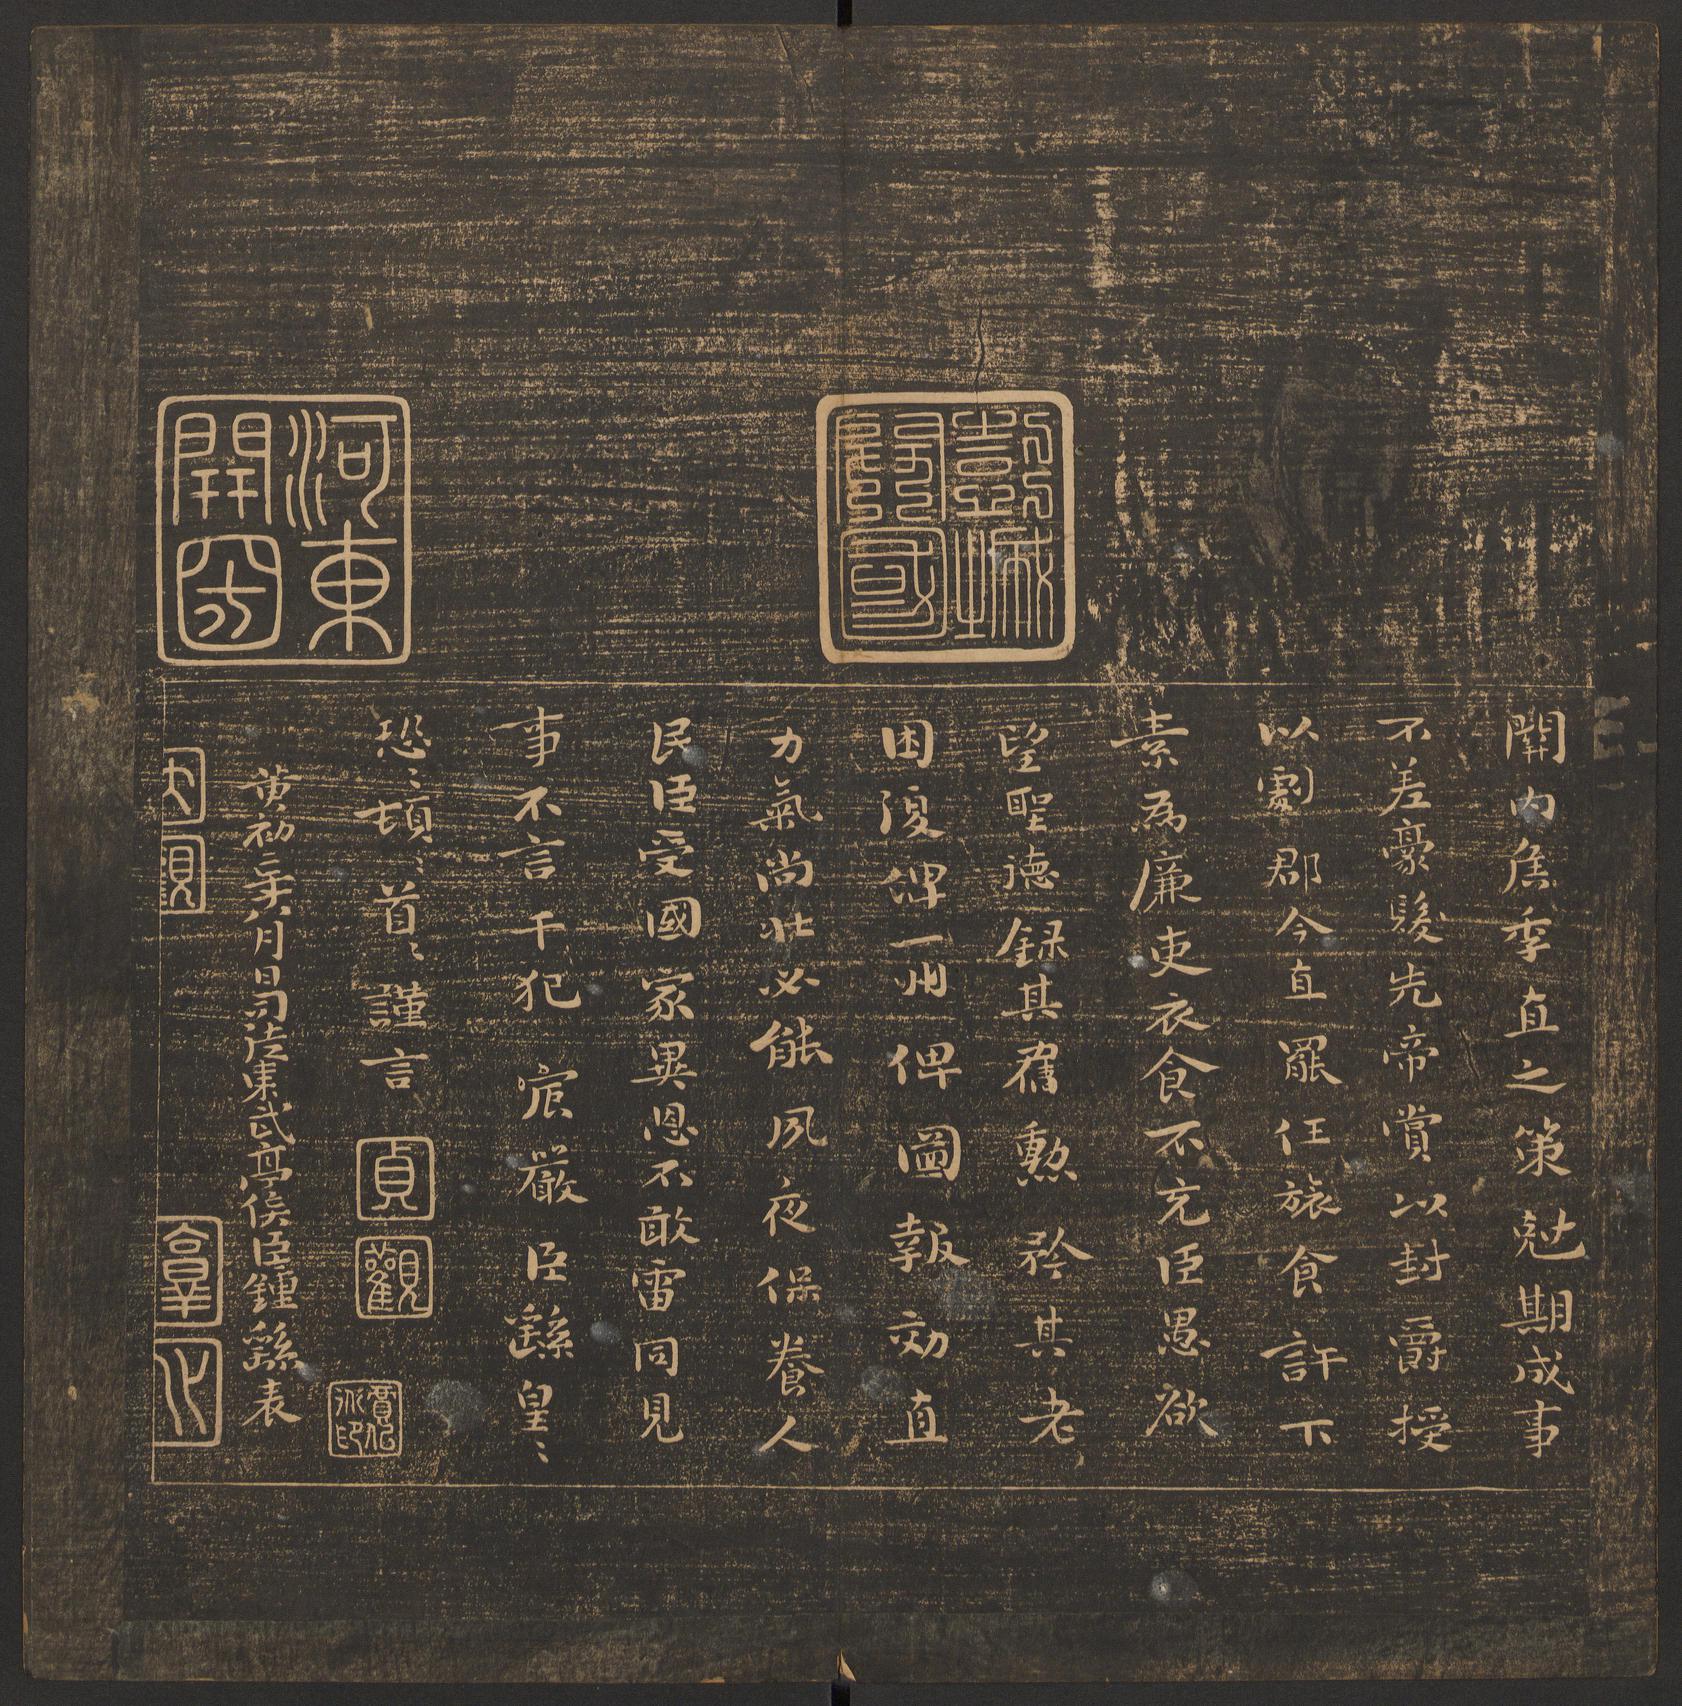 關內侯季直之策尅期成事
不差豪髮先帝賞以封爵授
以劇郡今直罷任旅食許下
素為廉吏衣食不充臣愚欲
望聖德録其舊勲矜其老
困復俾一州俾圖報效直
力氣尚壯必能夙夜保養人
民臣受國家異恩不敢雷同見
事不言干犯宸嚴臣繇皇〻
恐〻頓〻首〻謹言
黃初二年八月日司徒東武亭侯臣鍾繇表
河東
開國
貞
觀